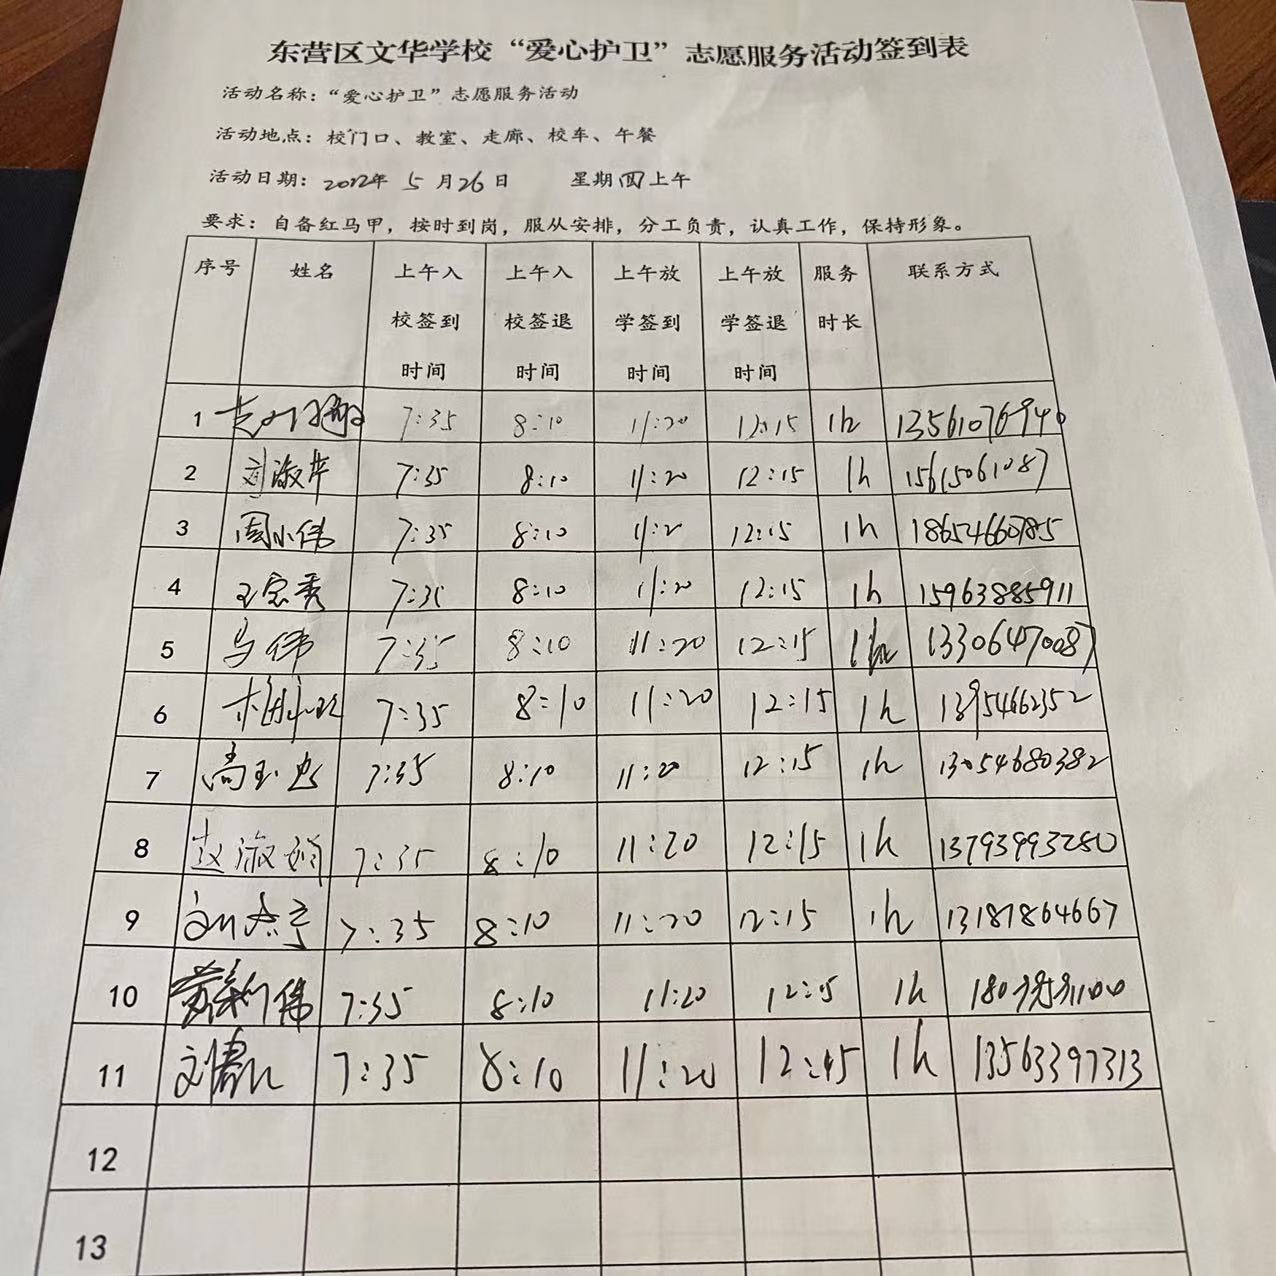 东营区文华学校“爱心护卫”志愿服务活动签到表
活动名称：“爱心护卫”志愿服务活动
活动地点：校门口、教室、走廊、校车、午餐
活动日期：2022年 5 月26日 星期四上午
要求：自备红马甲，按时到岗，服从安排，分工负责，认真工作，保持形象。
序号 姓名 上午入校签到时间 上午入校签退时间 上午放学签到时间 上午放学签退时间 服务时长 联系方式
1 7:35 8:10 11:20 12:15 1h 13561076940
2 刘淑华 7:35 8:10 11:20 12:15 1h 15615061087
3 周小伟 7:35 8:10 11:2 12:15 1h 18654660785
4 7:35 8:10 11:20 12:15 1h 15963885911
5 马伟 7:35 8:10 11:20 12:15 1h 13306470087
6 7:35 8:10 11:20 12:15 1h 13954662352
7 7:35 8:10 11:20 12:15 1h 13054680382
8 赵淑娟 7:35 8:10 11:20 12:15 1h 13793993280
9 7:35 8:10 11:20 12:15 1h 13181864667
10 7:35 8:10 11:20 12:15 1h
11 7:35 8:10 11:20 12:45 1h 13563397313
12
13